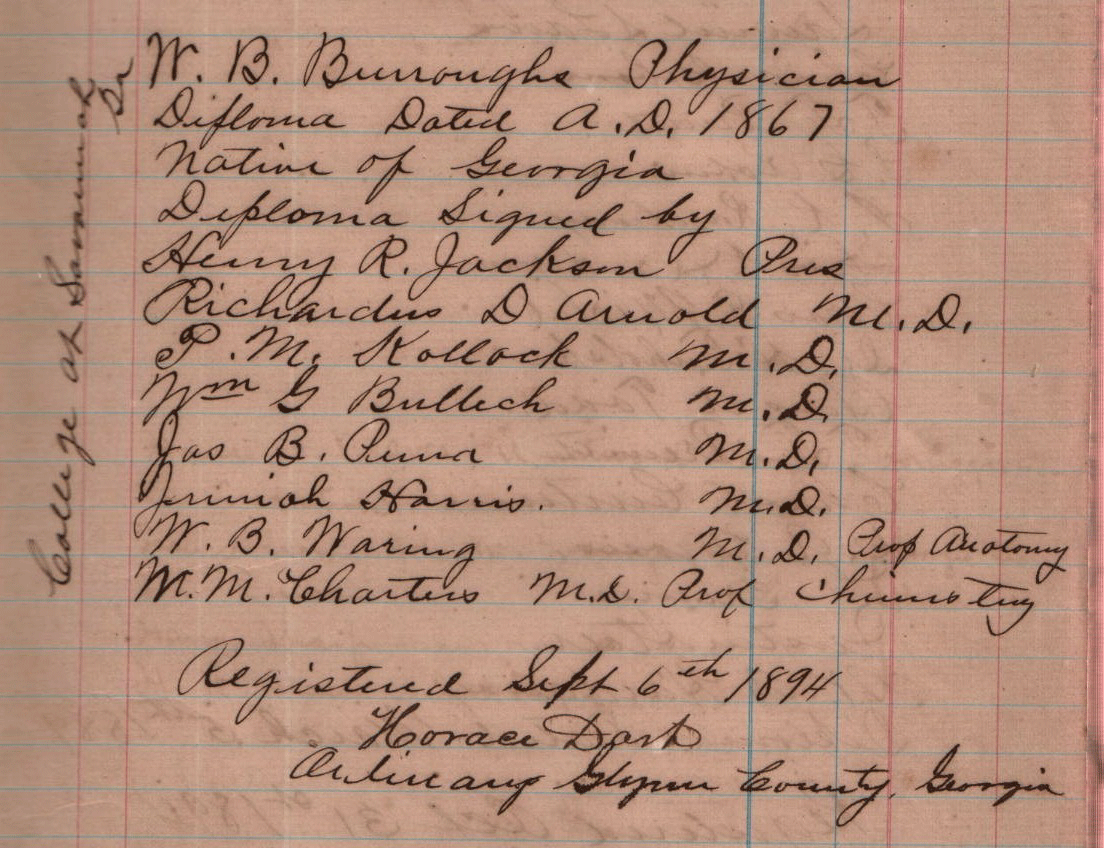 W. B. Burroughs Physician
Diploma Dated A.D. 1867
Native of Georgia
Diploma Signed by
Henry R. Jackson Pres
Richardus D Arnold M.D.
P. M. Kollock M.D.
Wm G Bulloch M.D.
Jas B. Read M.D.
Juriah Harris. M.D.
W. B. Waring M.D. Prof Anatomy
W. M. Charters M.D. Prof Chemistry
Registered Sept 6th 1894
Horace Dart
Ordinary Glynn County, Georgia
College at Savannah